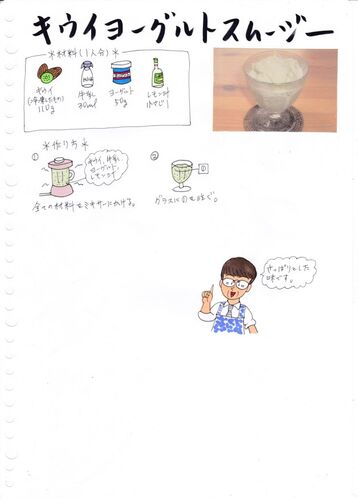 キウイヨーグルトスムージー
＊材料(1人分)＊
キウイ
(冷凍したもの)
110g
牛乳
30ml
ヨーグルト
50g
レモン汁
小さじ1
＊作り方＊
①
キウイ、牛乳、
ヨーグルト、
レモン汁
全ての材料をミキサーにかける。
②
①
グラスに①を注ぐ。
さっぱりとした
味です。